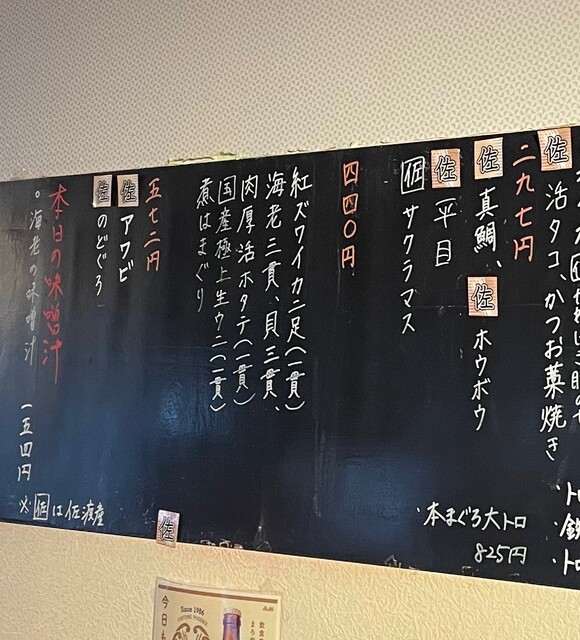 佐 活タコ、かつお藁焼き
二九七円
佐 真鯛、佐 ホウボウ
佐 平目
佐 サクラマス
・本まぐろ大トロ
825円
四四〇円
紅ズワイカニ足(一貫)
海老三貫、貝三貫、
肉厚活ホタテ(一貫)
国産極上生ウニ(一貫)
煮はまぐり
五七二円
佐 アワビ
佐 のどぐろ
本日の味噌汁
○海老の味噌汁 一五四円
※佐は佐渡産
佐
Since 1986
Asahi